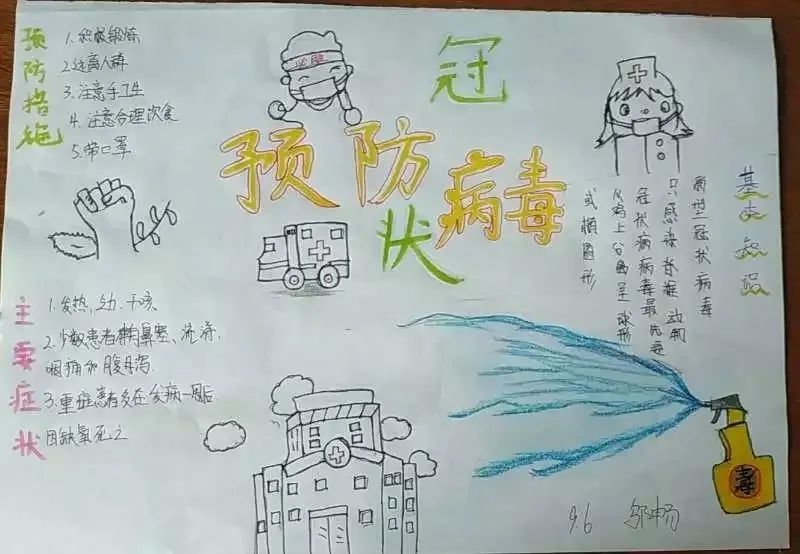 预防措施
1.积极锻炼
2.远离人群
3.注意手卫生
4.注意合理饮食
5.带口罩
必胜
冠
预防
状
病毒
基本知识
新型冠状病毒
只感染脊椎动物
冠状病病毒最先是
从鸡上分离呈球形
或椭圆形
主要症状
1.发热、乏力、干咳
2.少数患者有鼻塞、流涕、
咽痛和腹泻
3.重症患者多在发病一周后
因缺氧死亡
毒
9.6 邹畅